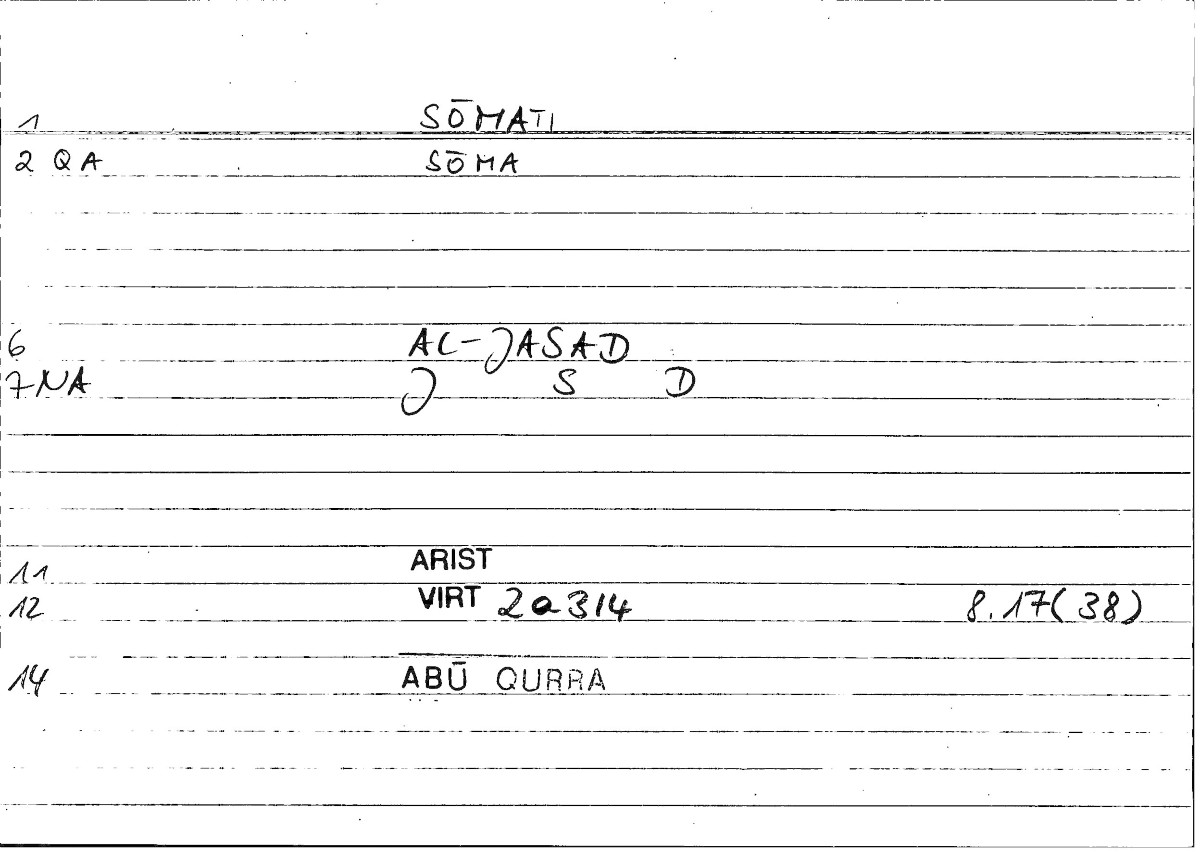 1 SŌMATI
2 QA SŌMA
6 AL-JASAD
7 NA J S D
11 ARIST
12 VIRT 2a3/4 8.17(38)
14 ABŪ QURRA